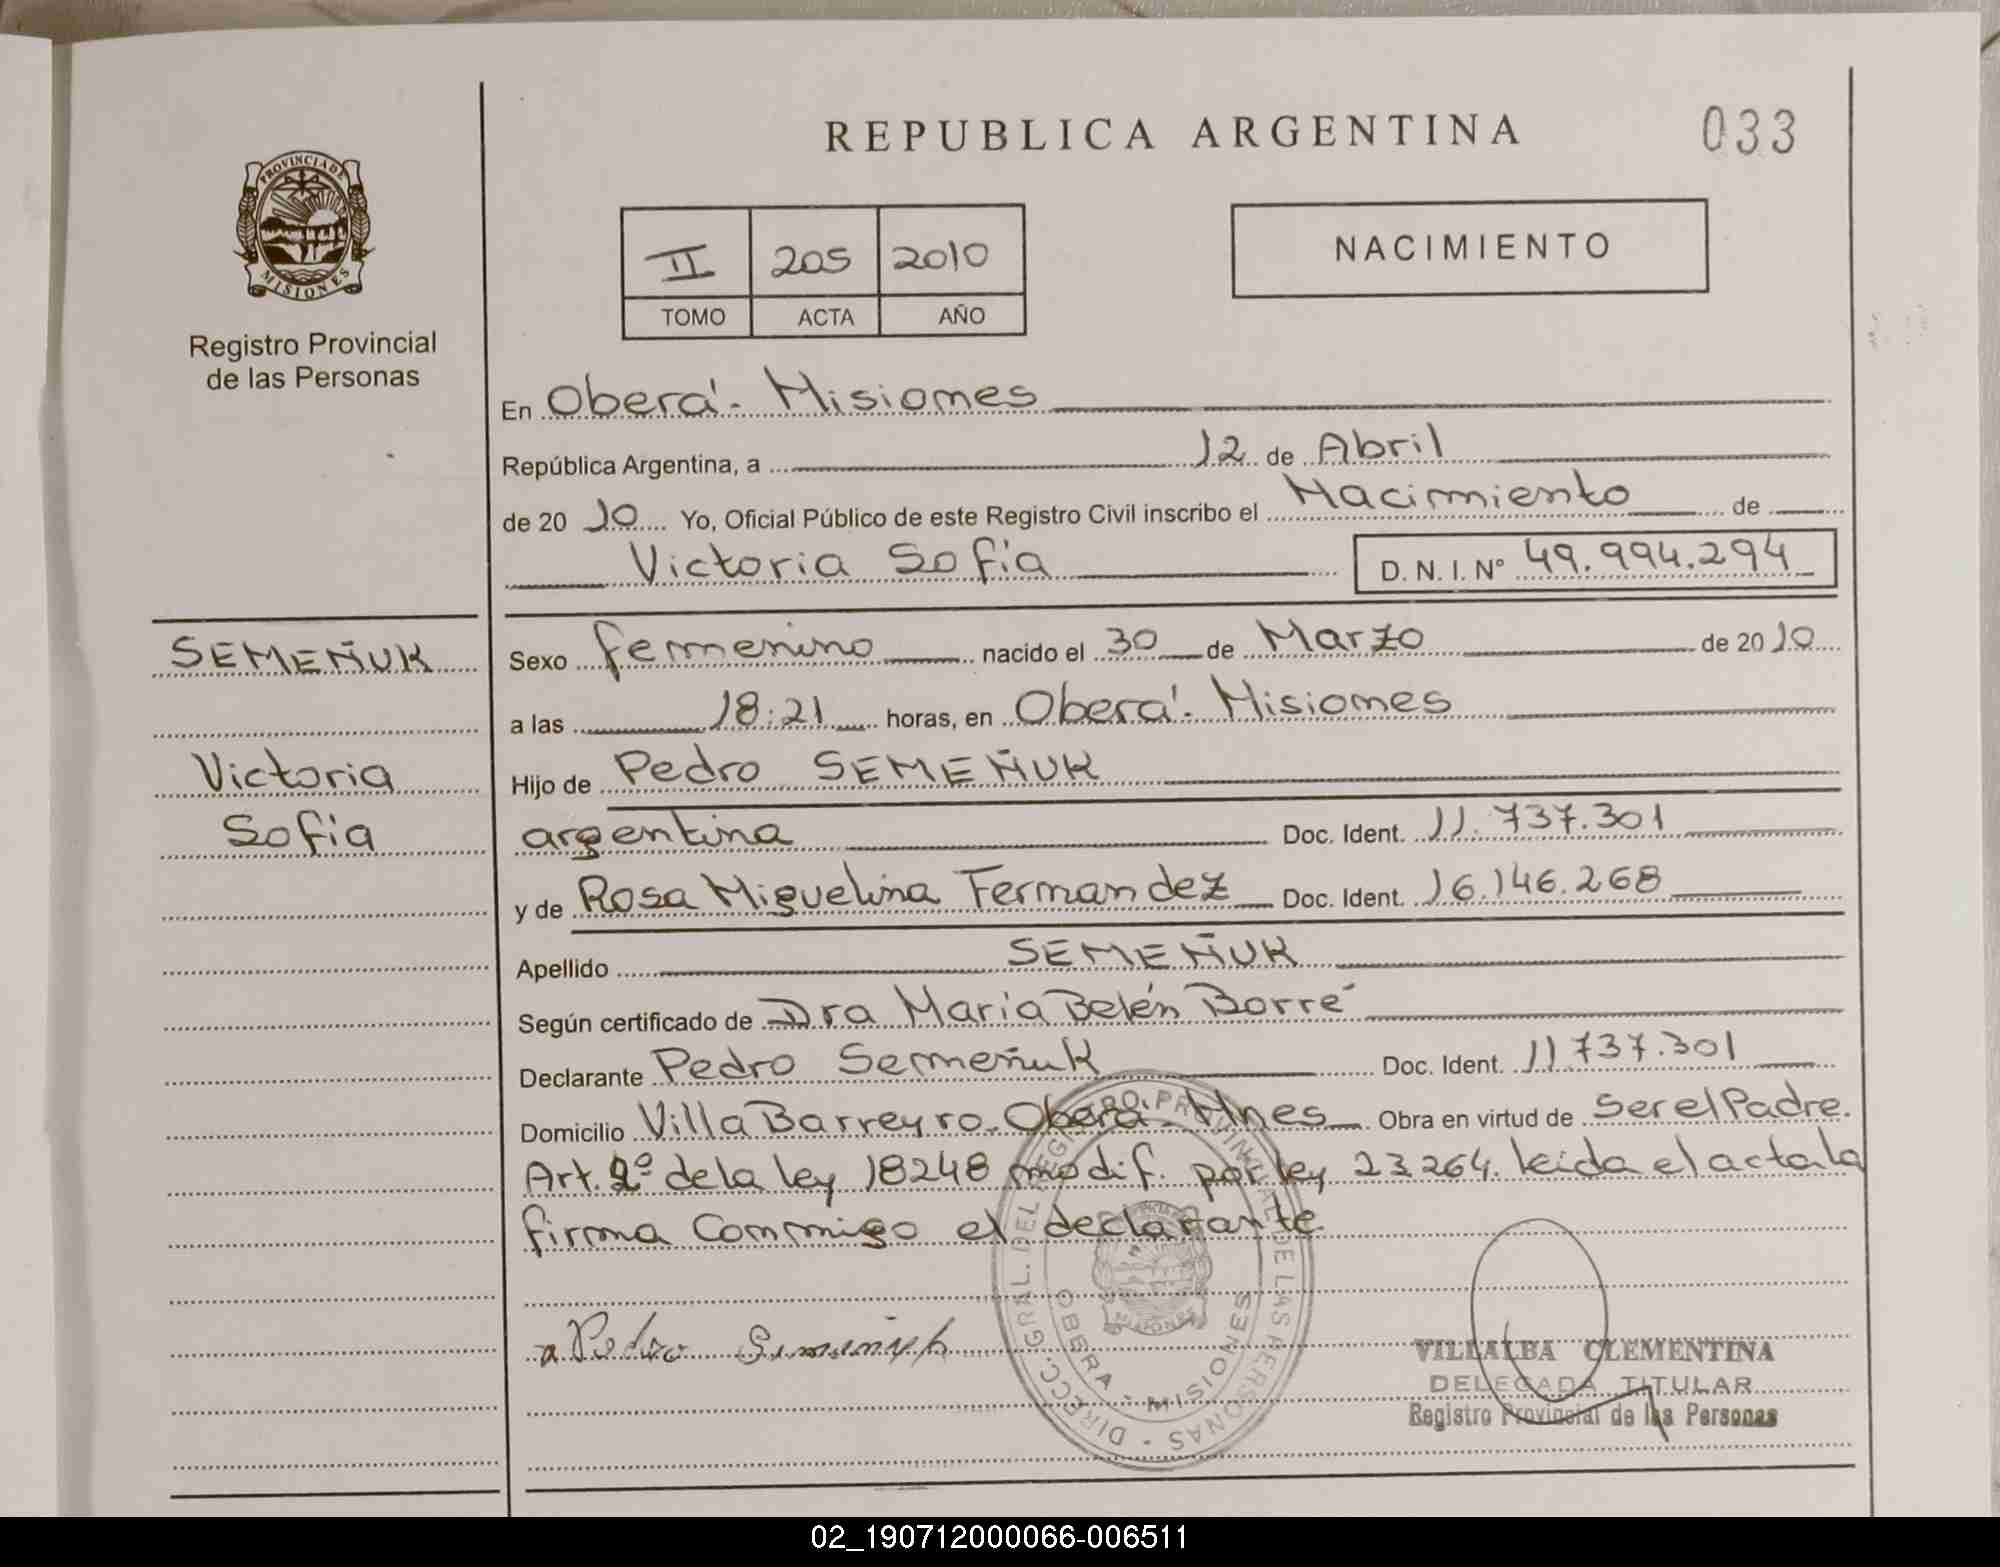 REPUBLICA ARGENTINA
033
PROVINCIA DE
MISIONES
Registro Provincial
de las Personas
II 205 2010
TOMO ACTA AÑO
NACIMIENTO
En Oberá - Misiones
República Argentina, a 12 de Abril
de 20 10 Yo, Oficial Público de este Registro Civil inscribo el Nacimiento de
Victoria Sofía D. N. I. Nº 49.994.294
SEMEÑUK
Victoria
Sofía
Sexo femenino nacido el 30 de Marzo de 20 10
a las 18:21 horas, en Oberá - Misiones
Hijo de Pedro SEMEÑUK
argentina Doc. Ident. 11.737.301
y de Rosa Miguelina Fernandez Doc. Ident. 16.146.268
Apellido SEMEÑUK
Según certificado de Dra María Belén Borré
Declarante Pedro Semeñuk Doc. Ident. 11737.301
Domicilio Villa Barreyro - Oberá - Mnes Obra en virtud de Ser el Padre.
Art. 2º de la ley 18248 modif. por ley 23.264. leida el acta la
firma conmigo el declarante
Pedro Semeñuk
DIRECC. GRAL. DEL REGISTRO PROVINCIAL DE LAS PERSONAS -
OBERA - MISIONES
VILLALBA CLEMENTINA
DELEGADA TITULAR
Registro Provincial de las Personas
02_190712000066-006511